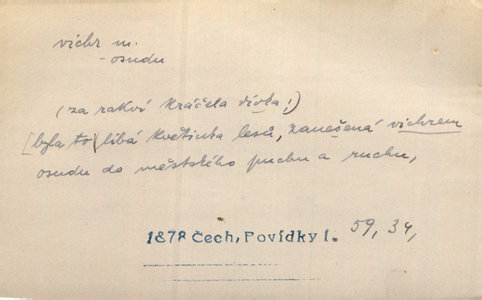 vichr m.
- osudu
(za rakví kráčela dívka:)
[byla to] libá květinka lesů, zanešená vichrem
osudu do městského puchu a ruchu,
1878 Čech, Povídky 1. 59, 34,